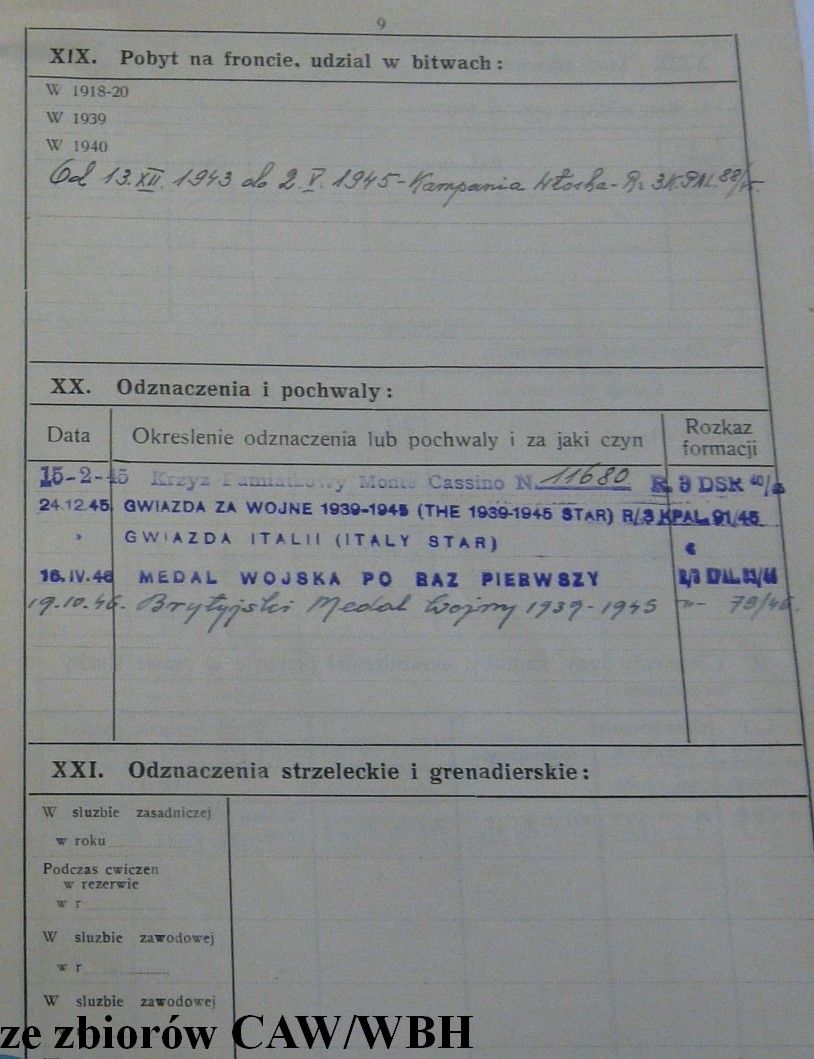 9
XIX. Pobyt na froncie, udzial w bitwach:
W 1918-20
W 1939
W 1940
Od 13.XII. 1943 do 2.V.1945 - Kampania Włoska - R. 3K.PAL. 88/45.
XX. Odznaczenia i pochwaly:
Data Okreslenie odznaczenia lub pochwaly i za jaki czyn Rozkaz formacji
15-2-45 Krzyz Pamiatkowy Monte Cassino N. 11680 R. 3 DSK 40/
24.12.45. GWIAZDA ZA WOJNE 1939-1945 (THE 1939-1945 STAR) R/3 KPAL. 91/45
" GWIAZDA ITALII (ITALY STAR)
16.IV.46 MEDAL WOJSKA PO RAZ PIERWSZY
19.10.46. Brytyjski Medal Wojny 1939-1945 -"- 79/46.
XXI. Odznaczenia strzeleckie i grenadierskie:
W sluzbie zasadniczej
w roku
Podczas cwiczen
w rezerwie
w r
W sluzbie zawodowej
w r
W sluzbie zawodowej
ze zbiorów CAW/WBH